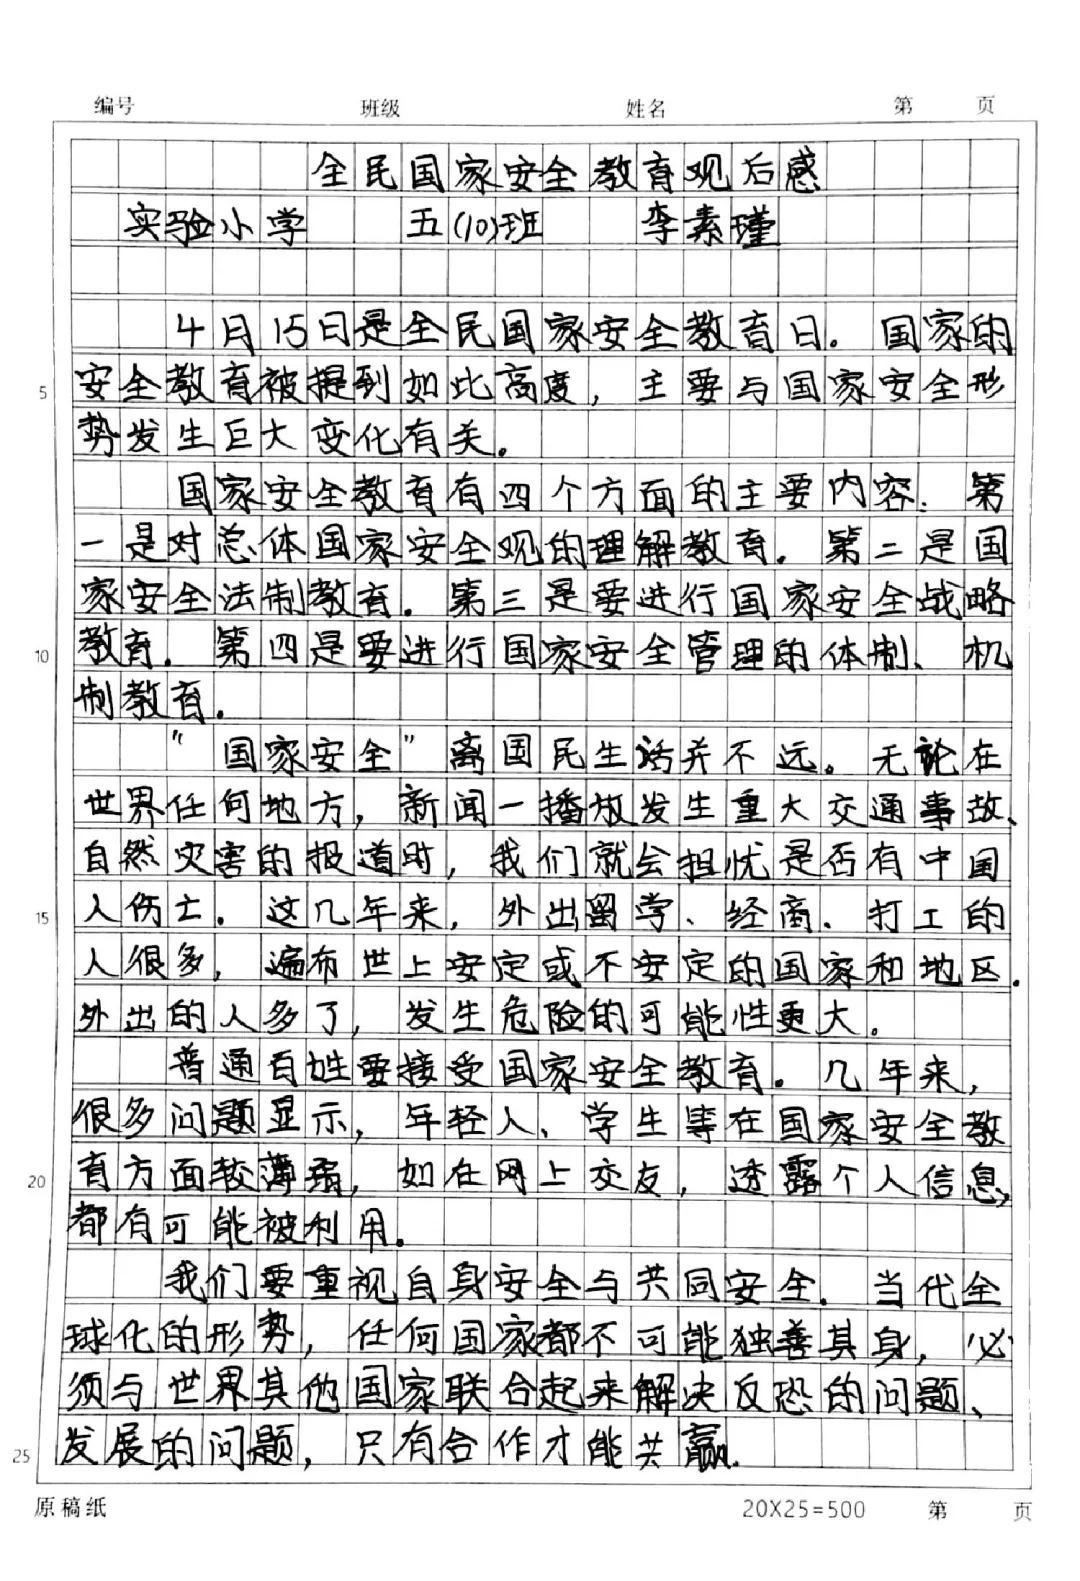 编号 班级 姓名 第 页
全民国家安全教育观后感
实验小学 五(10)班 李素瑾
4月15日是全民国家安全教育日。国家的
5 安全教育被提到如此高度，主要与国家安全形
势发生巨大变化有关。
国家安全教育有四个方面的主要内容：第
一是对总体国家安全观的理解教育。第二是国
家安全法制教育。第三是要进行国家安全战略
10 教育。第四是要进行国家安全管理的体制、机
制教育。
“国家安全”离国民生活并不远。无论在
世界任何地方，新闻一播放发生重大交通事故、
自然灾害的报道时，我们就会担忧是否有中国
15 人伤士。这几年来，外出留学、经商、打工的
人很多，遍布世上安定或不安定的国家和地区。
外出的人多了，发生危险的可能性更大。
普通百姓要接受国家安全教育。几年来，
很多问题显示，年轻人、学生等在国家安全教
20 育方面较薄弱，如在网上交友，透露个人信息，
都有可能被利用。
我们要重视自身安全与共同安全。当代全
球化的形势，任何国家都不可能独善其身，必
须与世界其他国家联合起来解决反恐的问题、
25 发展的问题，只有合作才能共赢。
原稿纸 20X25=500 第 页